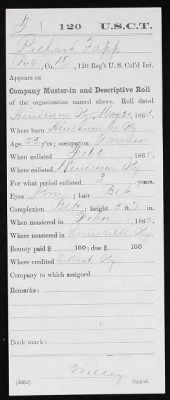 T | 120 | U.S.C.T.
Richard Tapp
Pvt., Co. , 120 Reg't U. S. Col'd Inf.
Appears on
Company Muster-in and Descriptive Roll
of the organization named above. Roll dated
Henderson Ky May , 1865.
Where born Henderson Co Ky
Age, 22 y'rs; occupation Farmer
When enlisted , 1865.
Where enlisted Henderson Ky
For what period enlisted 3 years.
Eyes ; hair Blk
Complexion Blk; height ft. in.
When mustered in , 1865.
Where mustered in Louisville Ky
Bounty paid $ 100; due $ 100
Where credited Ky
Company to which assigned
Remarks:
Book mark:
(356d) Copyist.